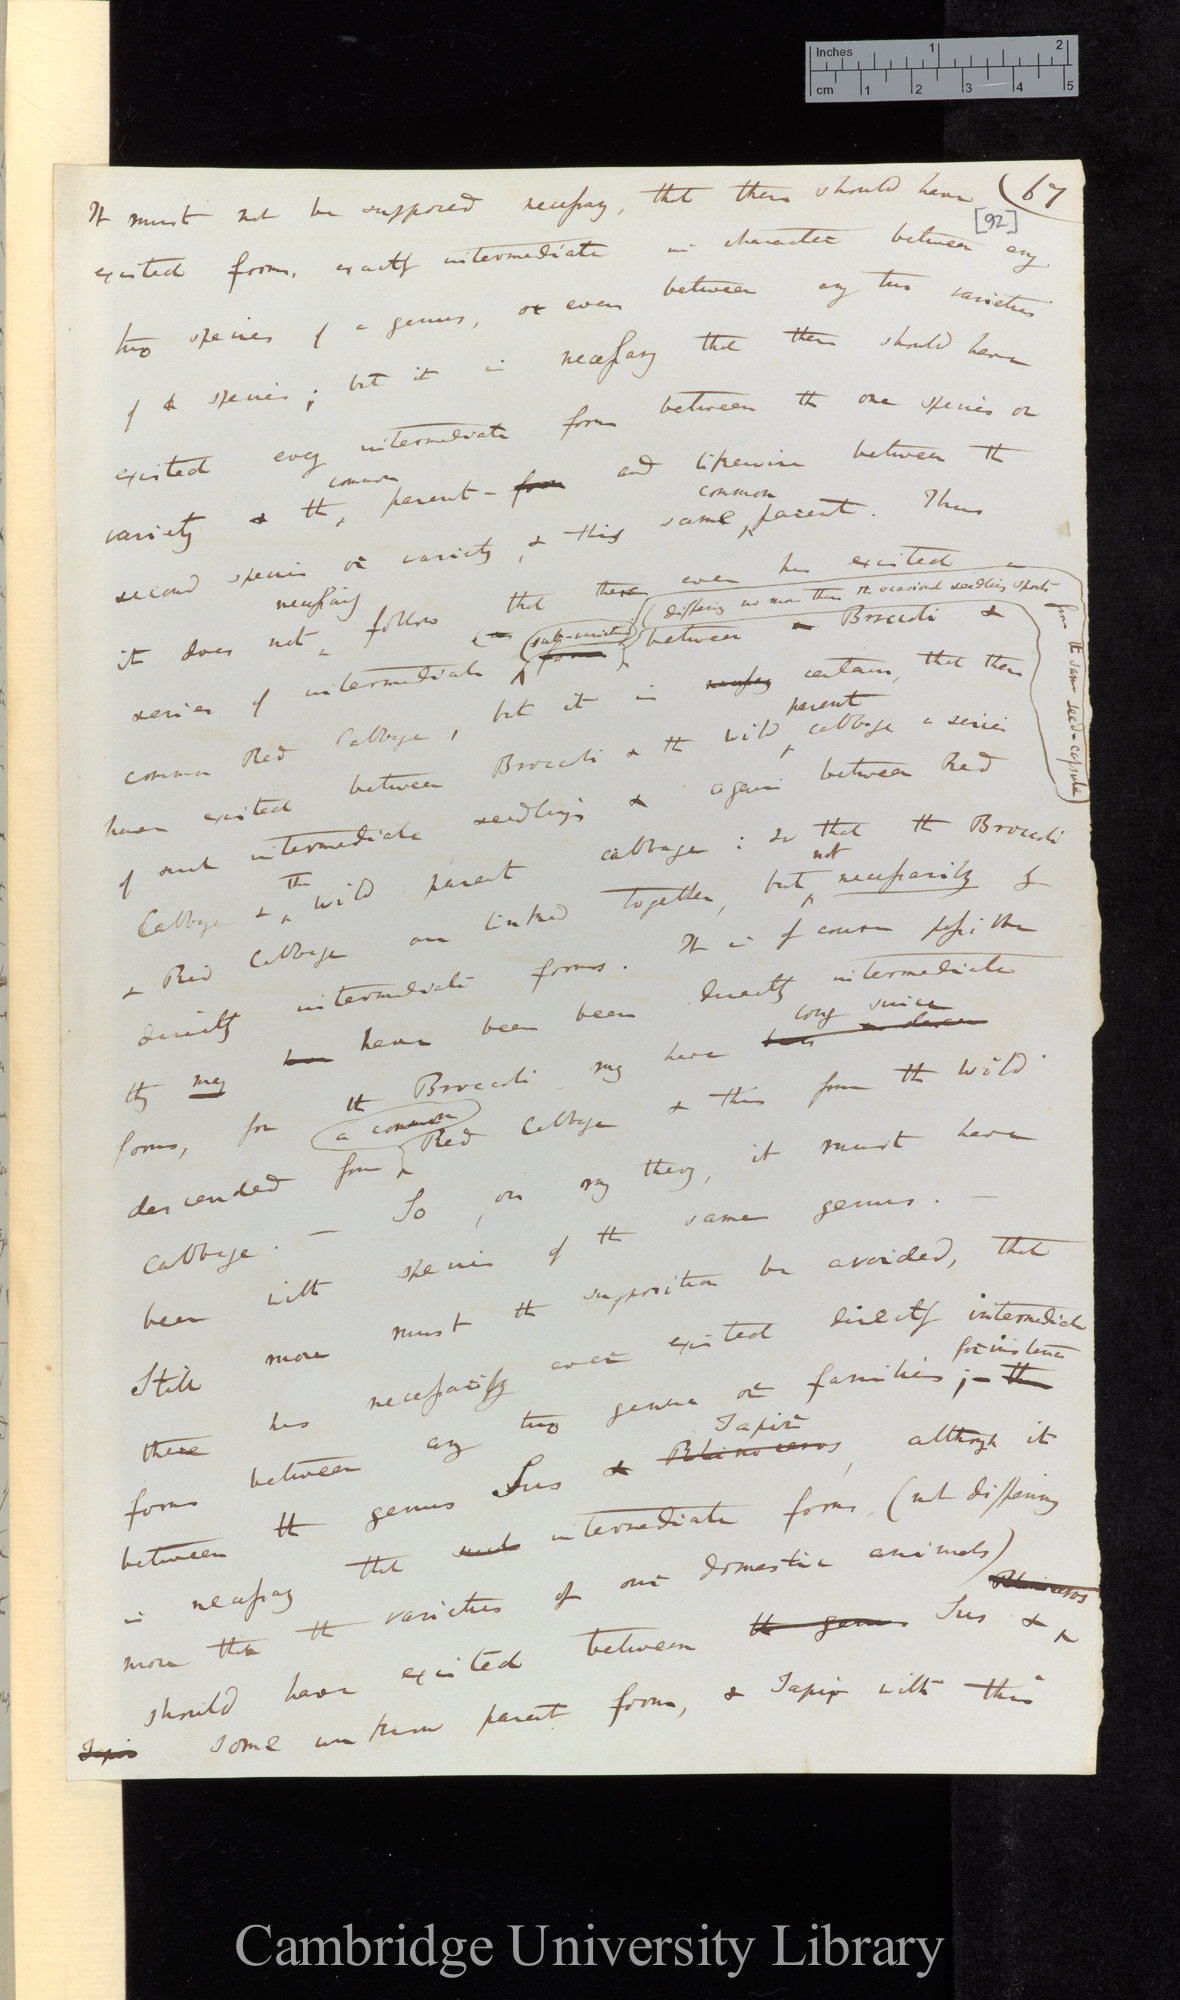 Inches 1 2
cm 1 2 3 4 5
67
[92]
It must not be supposed necessary, that there should have
existed forms, exactly intermediate in character between any
two species of a genus, or even between any two varieties
of a species; but it is necessary that there should have
existed every intermediate form between the one species or
common
variety & the parent-form and likewise between the
common
second species or variety, & this same parent. Thus
necessarily
it does not follow that there ever has existed a
(differing no more than the occasional seedlings sports
from the same seed-capsule)
sub-varieties
series of intermediate forms between a Broccoli &
common Red Cabbage, but it is necessary certain, that there
parent
have existed between Broccoli & the wild cabbage a series
of such intermediate seedlings & again between Red
the
Cabbage & wild parent cabbage: so that the Broccoli
not
& Red Cabbage are linked together, but necessarily by
directly intermediate forms. It is of course possible
they may have have been been directly intermediate
long since
forms, for the Broccoli may have
a common
descended from Red Cabbage & this from the wild
cabbage. — So, on my theory, it must have
been with species of the same genus. —
Still more must the supposition be avoided, that
there has necessarily ever existed directly intermediate
for instance
forms between any two genera or families;— the
Tapir
between the genus Sus & Rhinoceros, although it
is necessary that such intermediate forms, (not differing
more than the varieties of our domestic animals)
Rhinoceros
should have existed between the genus Sus &
Tapir some unknown parent form, & Tapir with this
Cambridge University Library